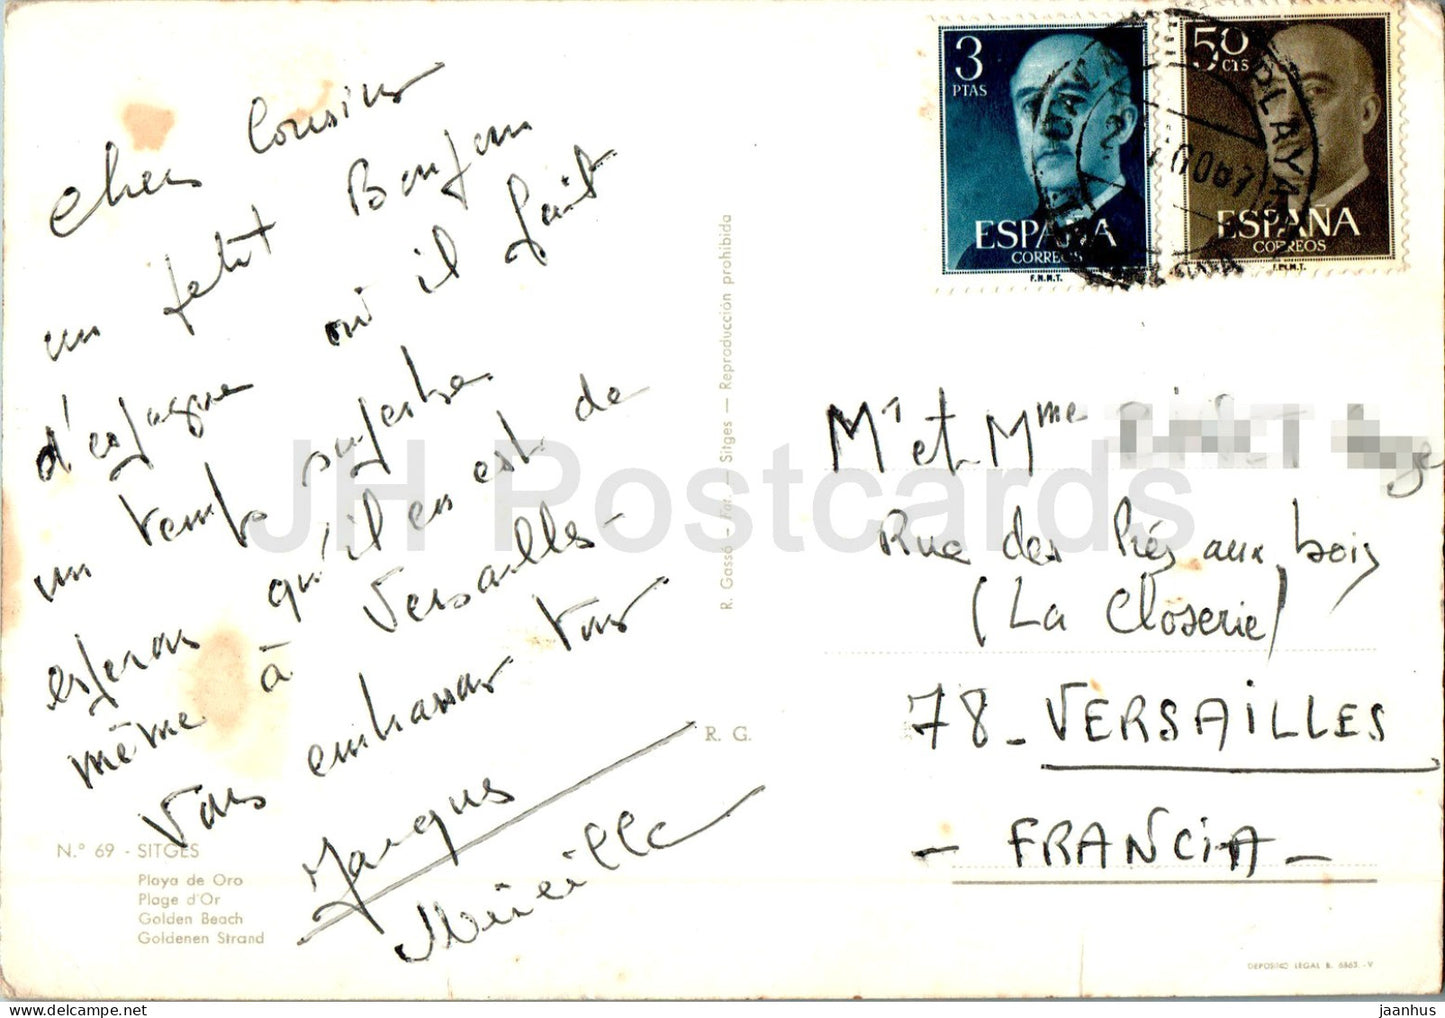 chers Cousins
un petit Bonjour
d'espagne où il fait
un temps superbe
esperons qu'il en est de
même à Versailles -
Vous embrassons tous
Jacques
Mireille
N.º 69 - SITGES
Playa de Oro
Plage d'Or
Golden Beach
Goldenen Strand
R. Gassó - Fot. - Sitges - Reproducción prohibida
R. G.
3
PTAS
ESPAÑA
CORREOS
F.N.M.T.
50
CTS
ESPAÑA
CORREOS
F.N.M.T.
Mr et Mme
Rue des Prés aux bois
(La Closerie)
78_VERSAILLES
- FRANCIA -
DEPOSITO LEGAL B. 6863 -V
JH Postcards
jaanhus